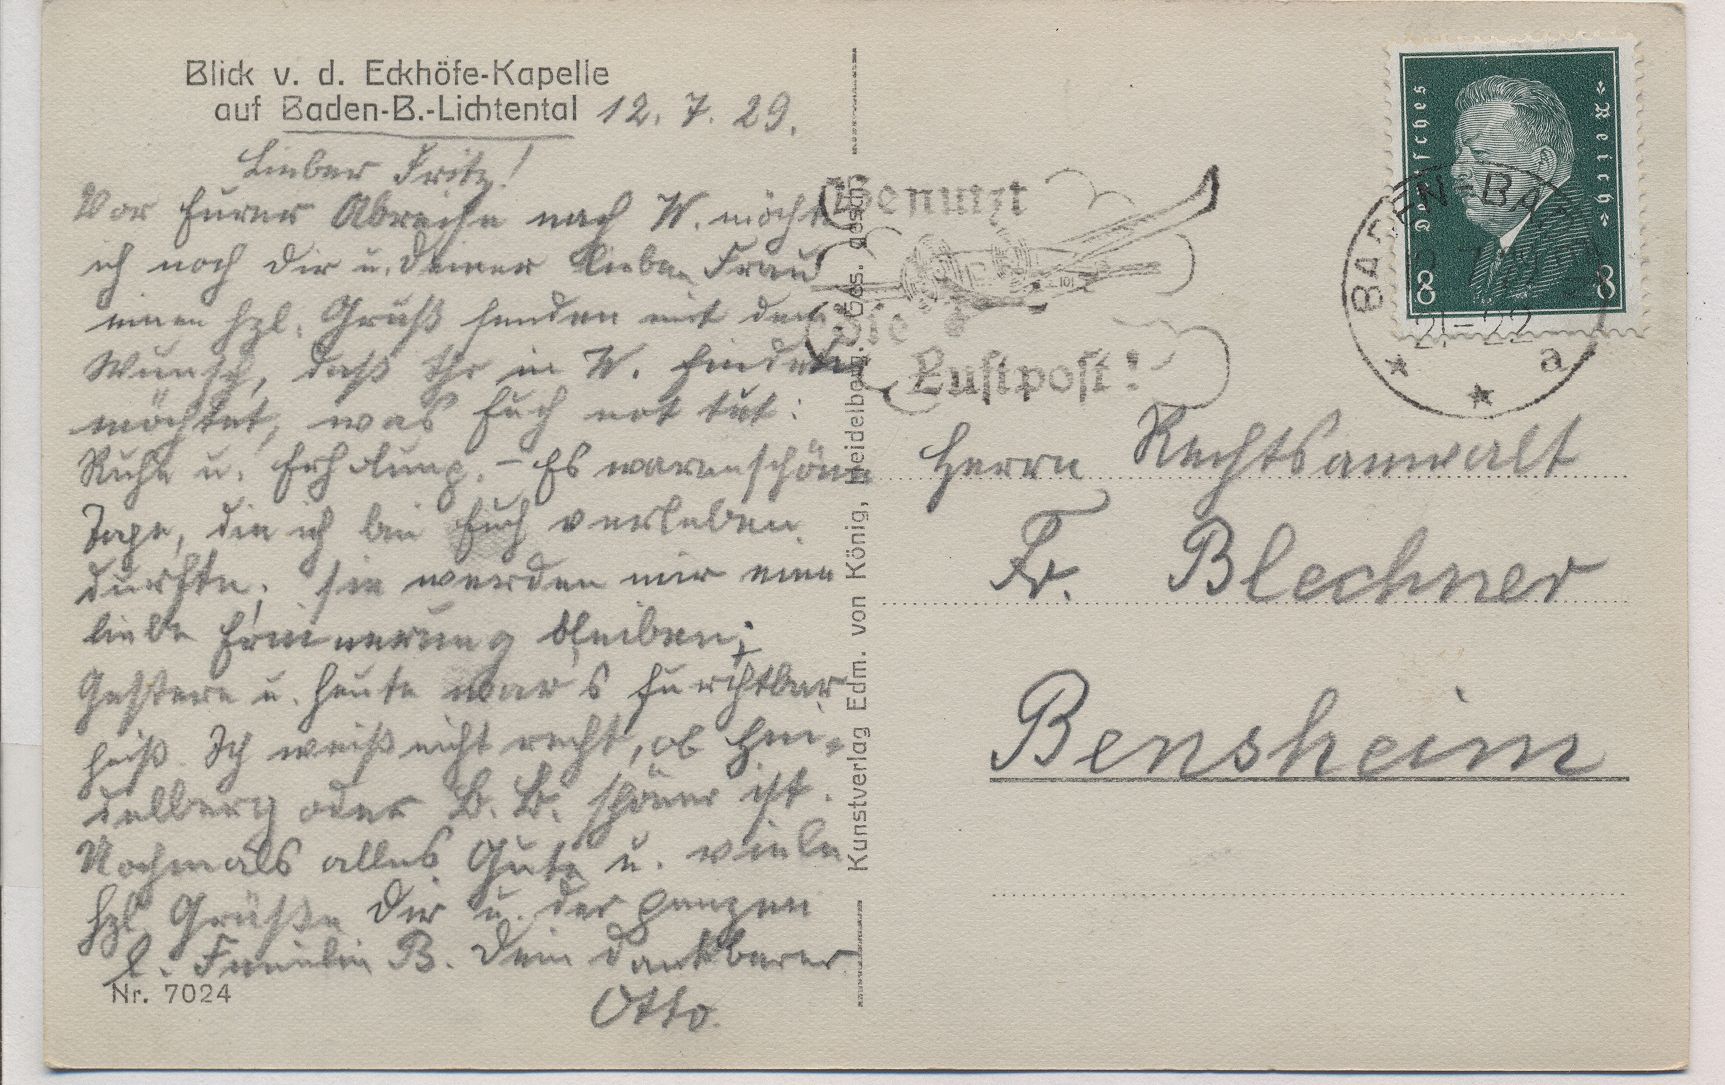 Blick v. d. Eckhöfe-Kapelle
auf Baden-B.-Lichtental
12. 7. 29.
Lieber Fritz!
Vor Eurer Abreise nach W. möchte
ich noch Dir u. Deiner lieben Frau
einen hzl. Gruß senden mit dem
Wunsch, daß Ihr in W. finden
möchtet, was Euch not tut:
Ruhe u. Erholung. – Es waren schöne
Tage, die ich bei Euch verleben
durfte; sie werden mir eine
liebe Erinnerung bleiben;
Gestern u. heute war's furchtbar
heiß. Ich weiß nicht recht, ob Hei-
delberg oder B. B. schöner ist.
Nochmals alles Gute u. viele
hzl. Grüße Dir u. der ganzen
l. Familie B. Dein dankbarer
Otto.
Nr. 7024
Kunstverlag Edm. von König, Heidelberg. Ges. gesch.
Benutzt
die
Luftpost!
Deutsches Reich
8 8
BADEN-BADEN
21-22
* * a
Herrn Rechtsanwalt
Fr. Blechner
Bensheim